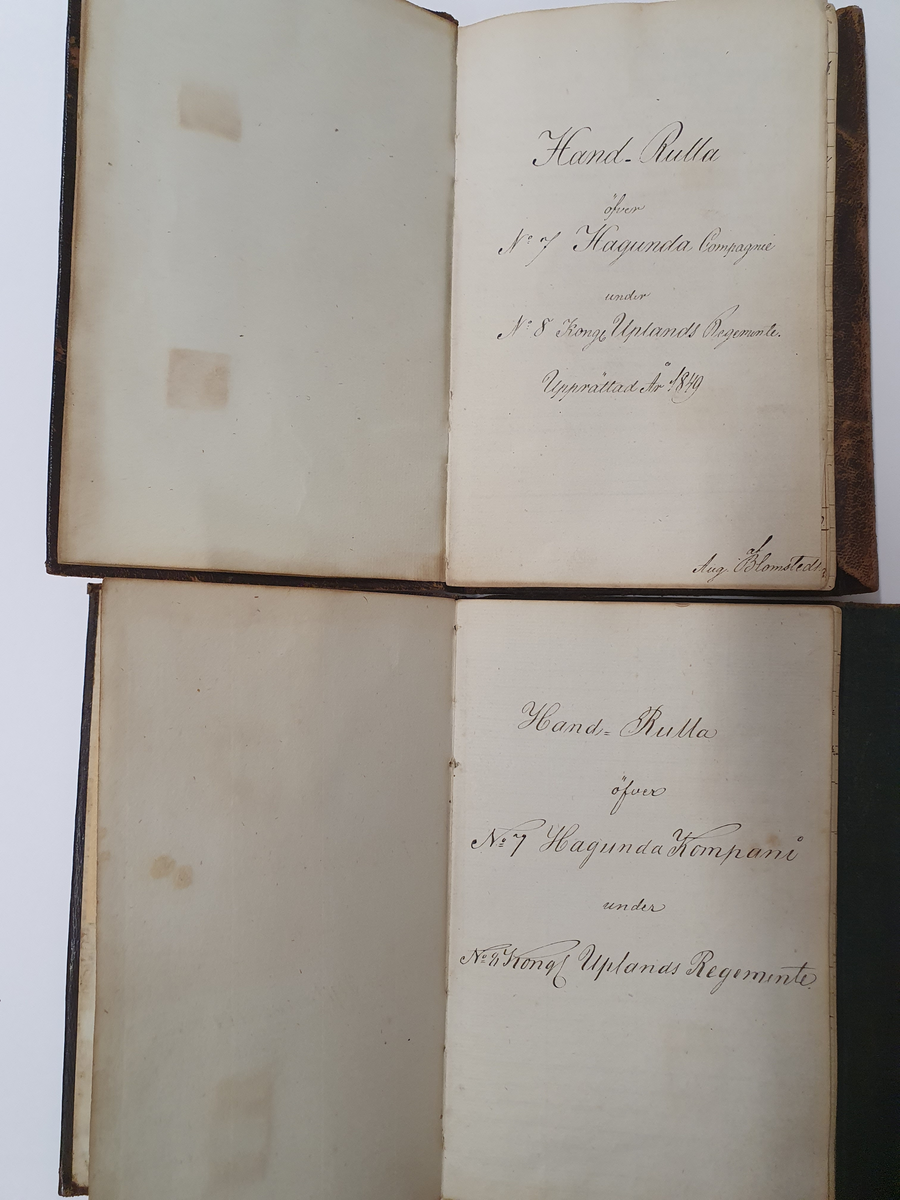 Hand-Rulla
öfver
No 7 Hagunda Compagnie
under
No 8 Kongl Uplands Regemente.
Upprättad År 1849
Aug. Blomstedt
Hand=Rulla
öfver
No 7 Hagunda Kompani
under
No 8 Kongl Uplands Regemente.